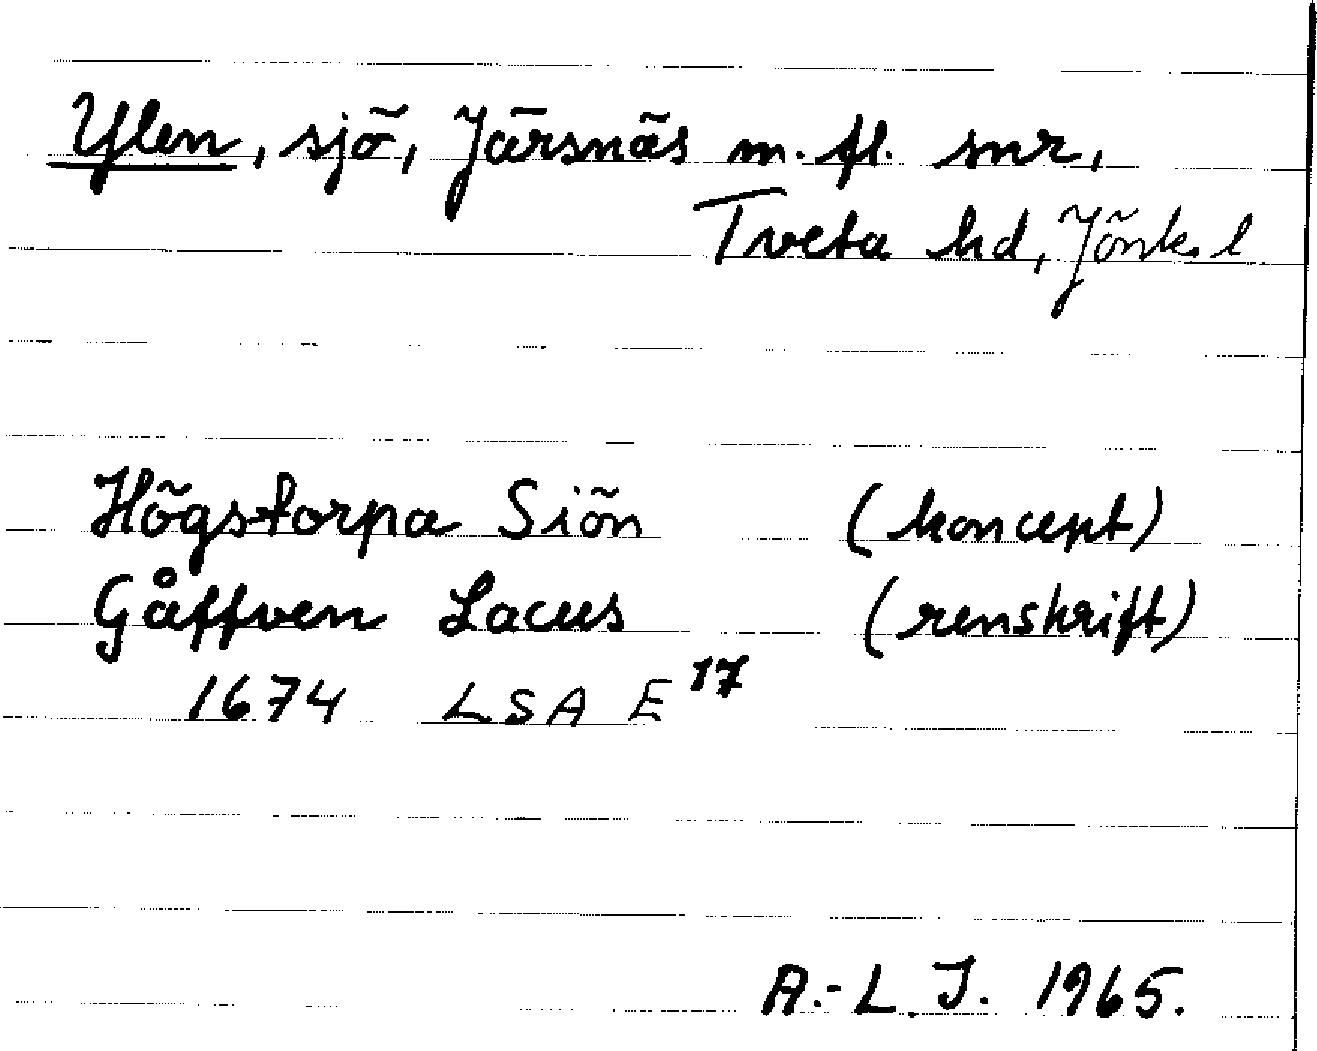 Ylen, sjö, Järsnäs m. fl. snr,
Tveta hd, Jönk. l
Högstorpa Siön (koncept)
Gåffven Lacus (renskrift)
1674 LSA E 17
A.-L. J. 1965.